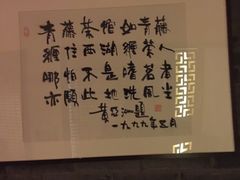 青藤茶館如青藤
纏住西湖纏茗人
哪怕不是
亦願此地洗風塵
黄亞洲題
一九九九年五月